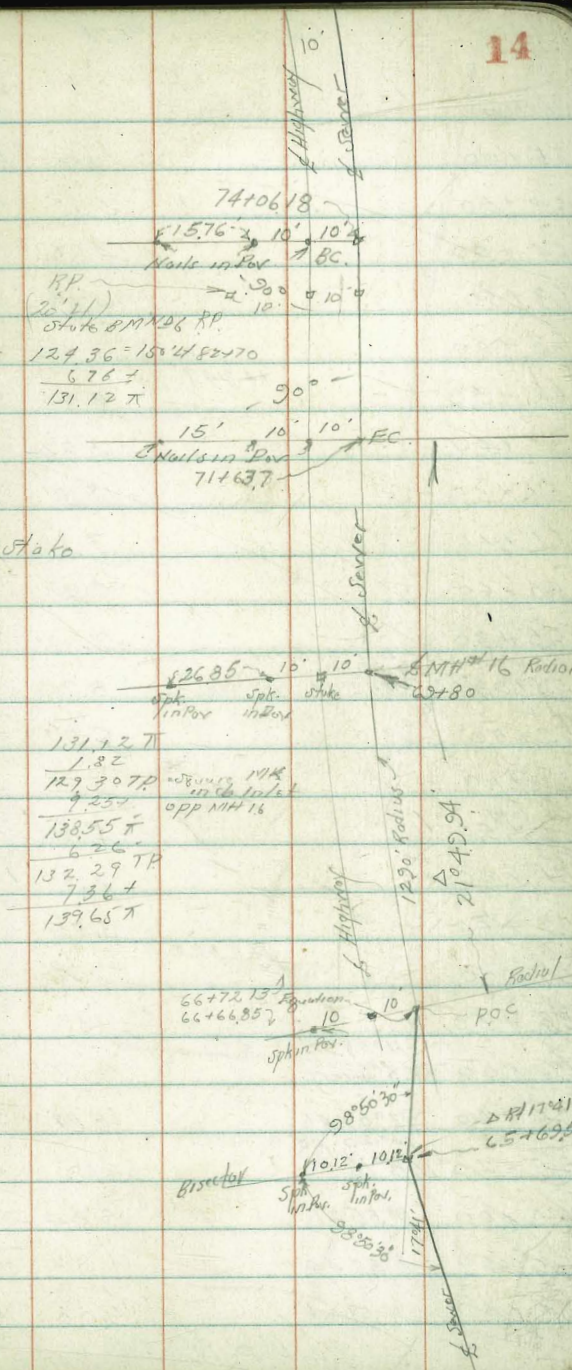 14
10'
℄ Highway
℄ Sewer
74+06.18
15.76' 10' 10'
Nails in Pav. BC.
R.P. 90°
10' 10'
State BM
124.36 =
6.76 +
131.12 π
90°
15' 10' 10' EC
Nails in Pav
71+63.7
Stake
℄ Sewer
26.85 10' 10' ℄ MH #16 Radial
Spk. in Pav Spk. in Pav Stake 69+80
131.12 π
1.82
129.30 TP.
9.25+ opp MH 16
138.55 π
6.26 -
132.29 TP
7.36 +
139.65 π
1290' Radius
Δ 21°49.94'
℄ Highway
Radial
66+72.15 Equation 10'
66+66.85 10 P.O.C
Spk in Pav.
98°50'30"
Δ Rt 17°41
65+69.5
Bisector 10.12' 10.12'
Spk. in Pav. Spk. in Pav.
98°50'30"
17°41'
℄ Sewer